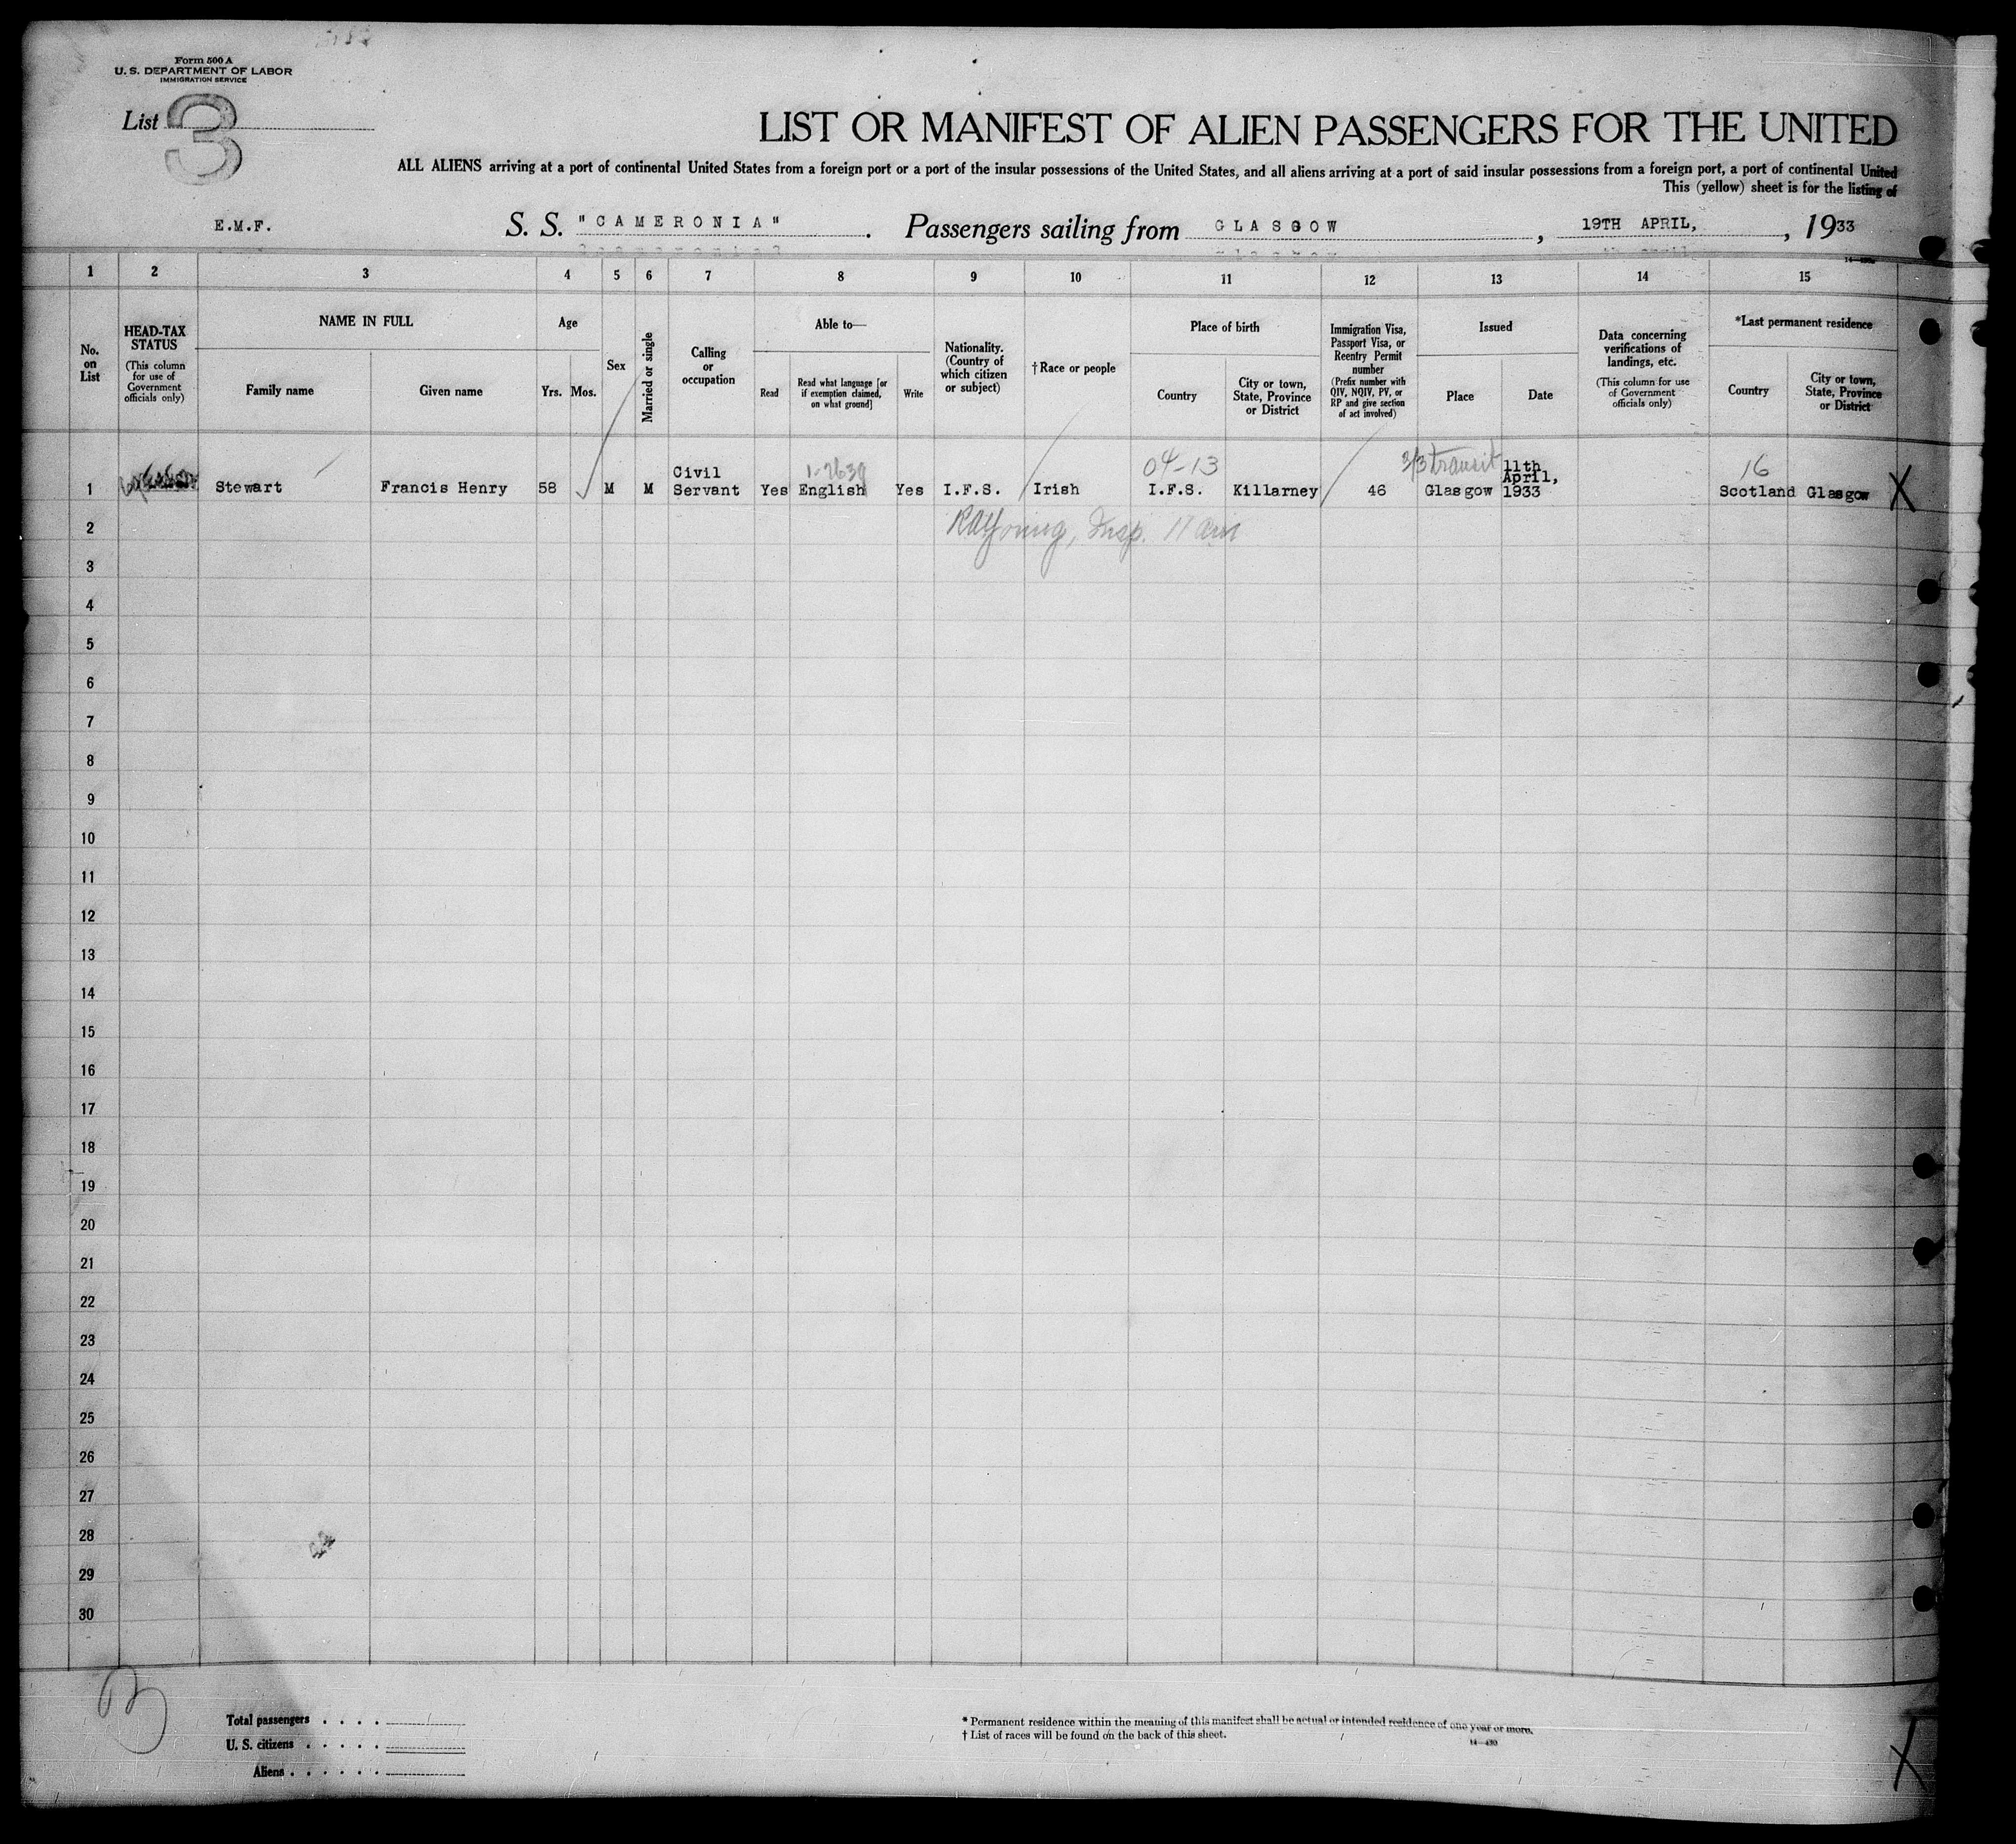 Form 500 A
U. S. DEPARTMENT OF LABOR
IMMIGRATION SERVICE
List 3
LIST OR MANIFEST OF ALIEN PASSENGERS FOR THE UNITED
ALL ALIENS arriving at a port of continental United States from a foreign port or a port of the insular possessions of the United States, and all aliens arriving at a port of said insular possessions from a foreign port, a port of continental United
This (yellow) sheet is for the listing of
E.M.F. S. S. "CAMERONIA". Passengers sailing from GLASGOW, 19TH APRIL, , 1933
1 2 3 4 5 6 7 8 9 10 11 12 13 14 15
No. on List
HEAD-TAX STATUS
(This column for use of Government officials only)
NAME IN FULL
Family name Given name
Age
Yrs. Mos.
Sex
Married or single
Calling or occupation
Able to—
Read
Read what language [or if exemption claimed, on what ground]
Write
Nationality. (Country of which citizen or subject)
†Race or people
Place of birth
Country
City or town, State, Province or District
Immigration Visa, Passport Visa, or Reentry Permit number
(Prefix number with QIV, NQIV, PV, or RP and give section of act involved)
Issued
Place Date
Data concerning verifications of landings, etc.
(This column for use of Government officials only)
*Last permanent residence
Country
City or town, State, Province or District
04-13 3/3 transit 16
1 Stewart Francis Henry 58 M M Civil Servant Yes English Yes I.F.S. Irish I.F.S. Killarney 46 Glasgow 11th April, 1933 Scotland Glasgow X
2 Insp. 11 am
3
4
5
6
7
8
9
10
11
12
13
14
15
16
17
18
19
20
21
22
23
24
25
26
27
28
29
30
Total passengers . . . .
U. S. citizens . . . . .
Aliens . . . . . .
* Permanent residence within the meaning of this manifest shall be actual or intended residence of one year or more.
† List of races will be found on the back of this sheet.
14—430
X